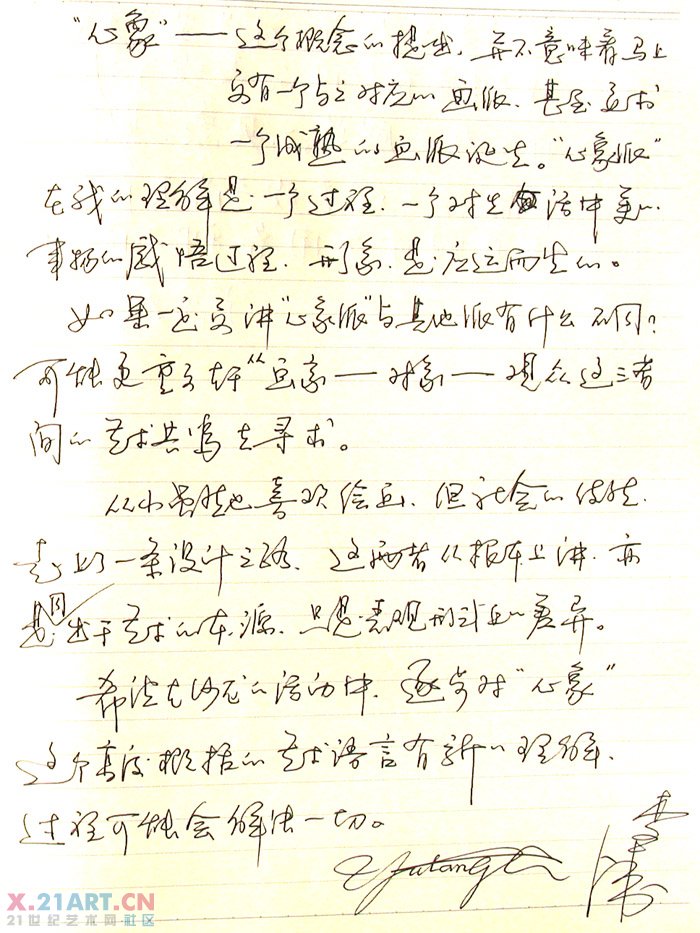 “心象”——这个概念的提出，并不意味着马上
要有一个与之对应的画派，甚至要求
一个成熟的画派诞生。“心象派”
在我的理解是一个过程，一个对生活中美的
事物的感悟过程，形象，是应运而生的。
如果一定要讲“心象派”与其他派有什么不同？
可能更重于在“画家——对象——观众这三者
间的艺术共鸣去寻求。
从小虽然也喜欢绘画，但社会的使然，
走上了一条设计之路，这两者从根本上讲，亦
是同出于艺术的本源，只是表现形式上的差异。
希望在沙龙的活动中，逐步对“心象”
这个高度概括的艺术语言有新的理解，
过程可能会解决一切。
李涛
X.21ART.CN
21世纪艺术网·社区